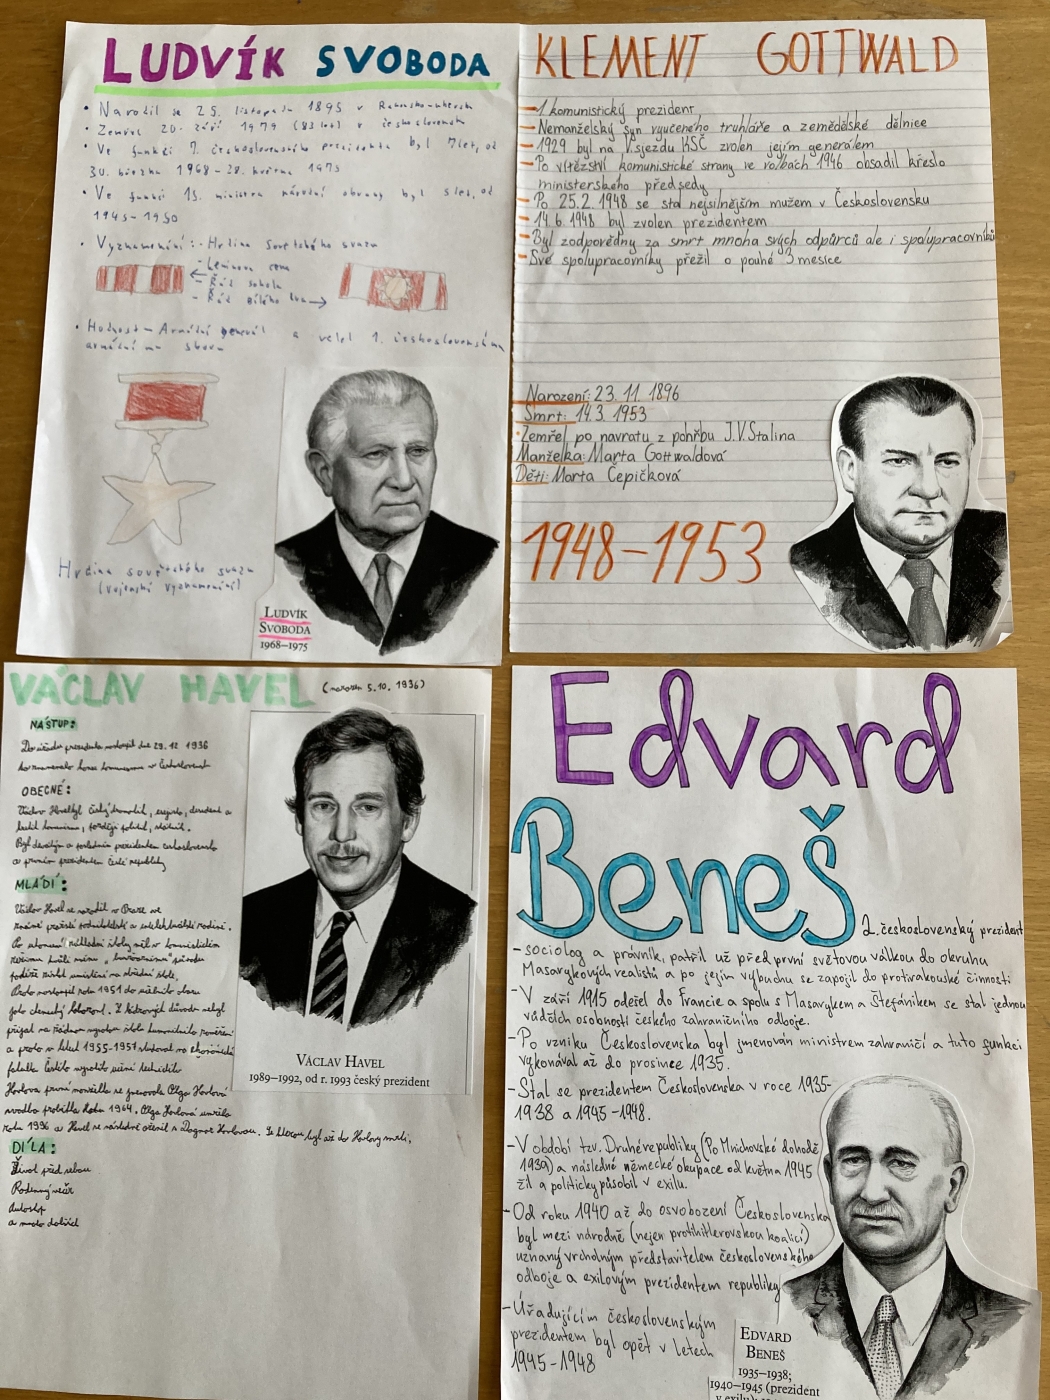 LUDVÍK SVOBODA
• Narodil se 25. listopadu 1895 v
• Zemřel 20. září 1979 (83 let) v československu
• Ve funkci 7. československého prezidenta byl 7 let, od
30. března 1968 - 28. května 1975
• Ve funkci 13. ministra národní obrany byl 5 let, od
1945 - 1950
• Vyznamenání: - Hrdina Sovětského svazu
- Leninova cena
- Řád sokola
- Řád bílého lva
• Hodnost - Armádní generál a velel 1. československému
armádnímu sboru
Hrdina sovětského svazu
(vojenské vyznamenání)
LUDVÍK
SVOBODA
1968–1975
KLEMENT GOTTWALD
- 1 komunistický prezident
- Nemanželský syn vyučeného truhláře a zemědělské dělnice
- 1929 byl na V. sjezdu KSČ zvolen jejím generálem
- Po vítězství komunistické strany ve volbách 1946 obsadil křeslo
ministerského předsedy
- Po 25.2. 1948 se stal nejsilnějším mužem v Československu
- 14.6. 1948 byl zvolen prezidentem
- Byl zodpovědný za smrt mnoha svých odpůrců ale i spolupracovníků
- Své spolupracovníky přežil o pouhé 3 měsíce
Narození: 23. 11. 1896
Smrt: 14.3. 1953
Zemřel po navratu z pohřbu J.V. Stalina
Manželka: Marta Gottwaldová
Děti: Marta Čepičková
1948-1953
VÁCLAV HAVEL (narozen 5.10. 1936)
NÁSTUP:
Do úřadu prezidenta nastoupil dne 29.12 1936
konec komunismu v Československu
OBECNĚ:
Václav Havel byl český dramatik, esejista, disident a
kritik komunismu, později politik, státník.
Byl devátým a posledním prezidentem československa
a prvním prezidentem České republiky
MLÁDÍ:
Václav Havel se narodil v Praze ve
známé pražské podnikatelské a intelektuálské rodině.
Po ukončení základní školy měl v komunistickém
režimu kvůli svému „buržoaznímu" původu
potíže získat umístění na střední škole,
Proto nastoupil roku 1951 do učebního oboru
jako chemický laborant. Z kádrových důvodů nebyl
přijat na žádnou vysokou školu humanitního zaměření
a proto v letech 1955-1957 studoval na ekonomické
fakultě Českého vysokého učení technického
Havlova první manželka se jmenovala Olga Havlová
svatba proběhla Roku 1964. Olga Havlová umřela
roku 1996 a Havel se následně oženil s Dagmar Havlovou. Se kterou byl až do Havlovy smrti.
DÍLA:
Život před sebou
Rodinný večer
Autostop
a mnoho dalších
VÁCLAV HAVEL
1989–1992, od r. 1993 český prezident
Edvard
Beneš
2. československý prezident
- sociolog a právník, patřil už před první světovou válkou do okruhu
Masarykových realistů a po jejím výbuchu se zapojil do protirakouské činnosti
- V září 1915 odešel do Francie a spolu s Masarykem a Štefánikem se stal jednou
vůdčích osobností českého zahraničního odboje.
- Po vzniku Československa byl jmenován ministrem zahraničí a tuto funkci
vykonával až do prosince 1935.
- Stal se prezidentem Československa v roce 1935-
1938 a 1945-1948.
- V období tzv. Druhé republiky (Po Mnichovské dohodě
1939) a následné německé okupace od května 1945
žil a politicky působil v exilu.
- Od roku 1940 až do osvobození Československa
byl mezi národně (nejen protihitlerovskou koalicí)
uznaný vrcholným představitelem československého
odboje a exilovým prezidentem republiky
- Úřadujícím československým
prezidentem byl opět v letech
1945-1948
EDVARD
BENEŠ
1935–1938;
1940–1945 (prezident